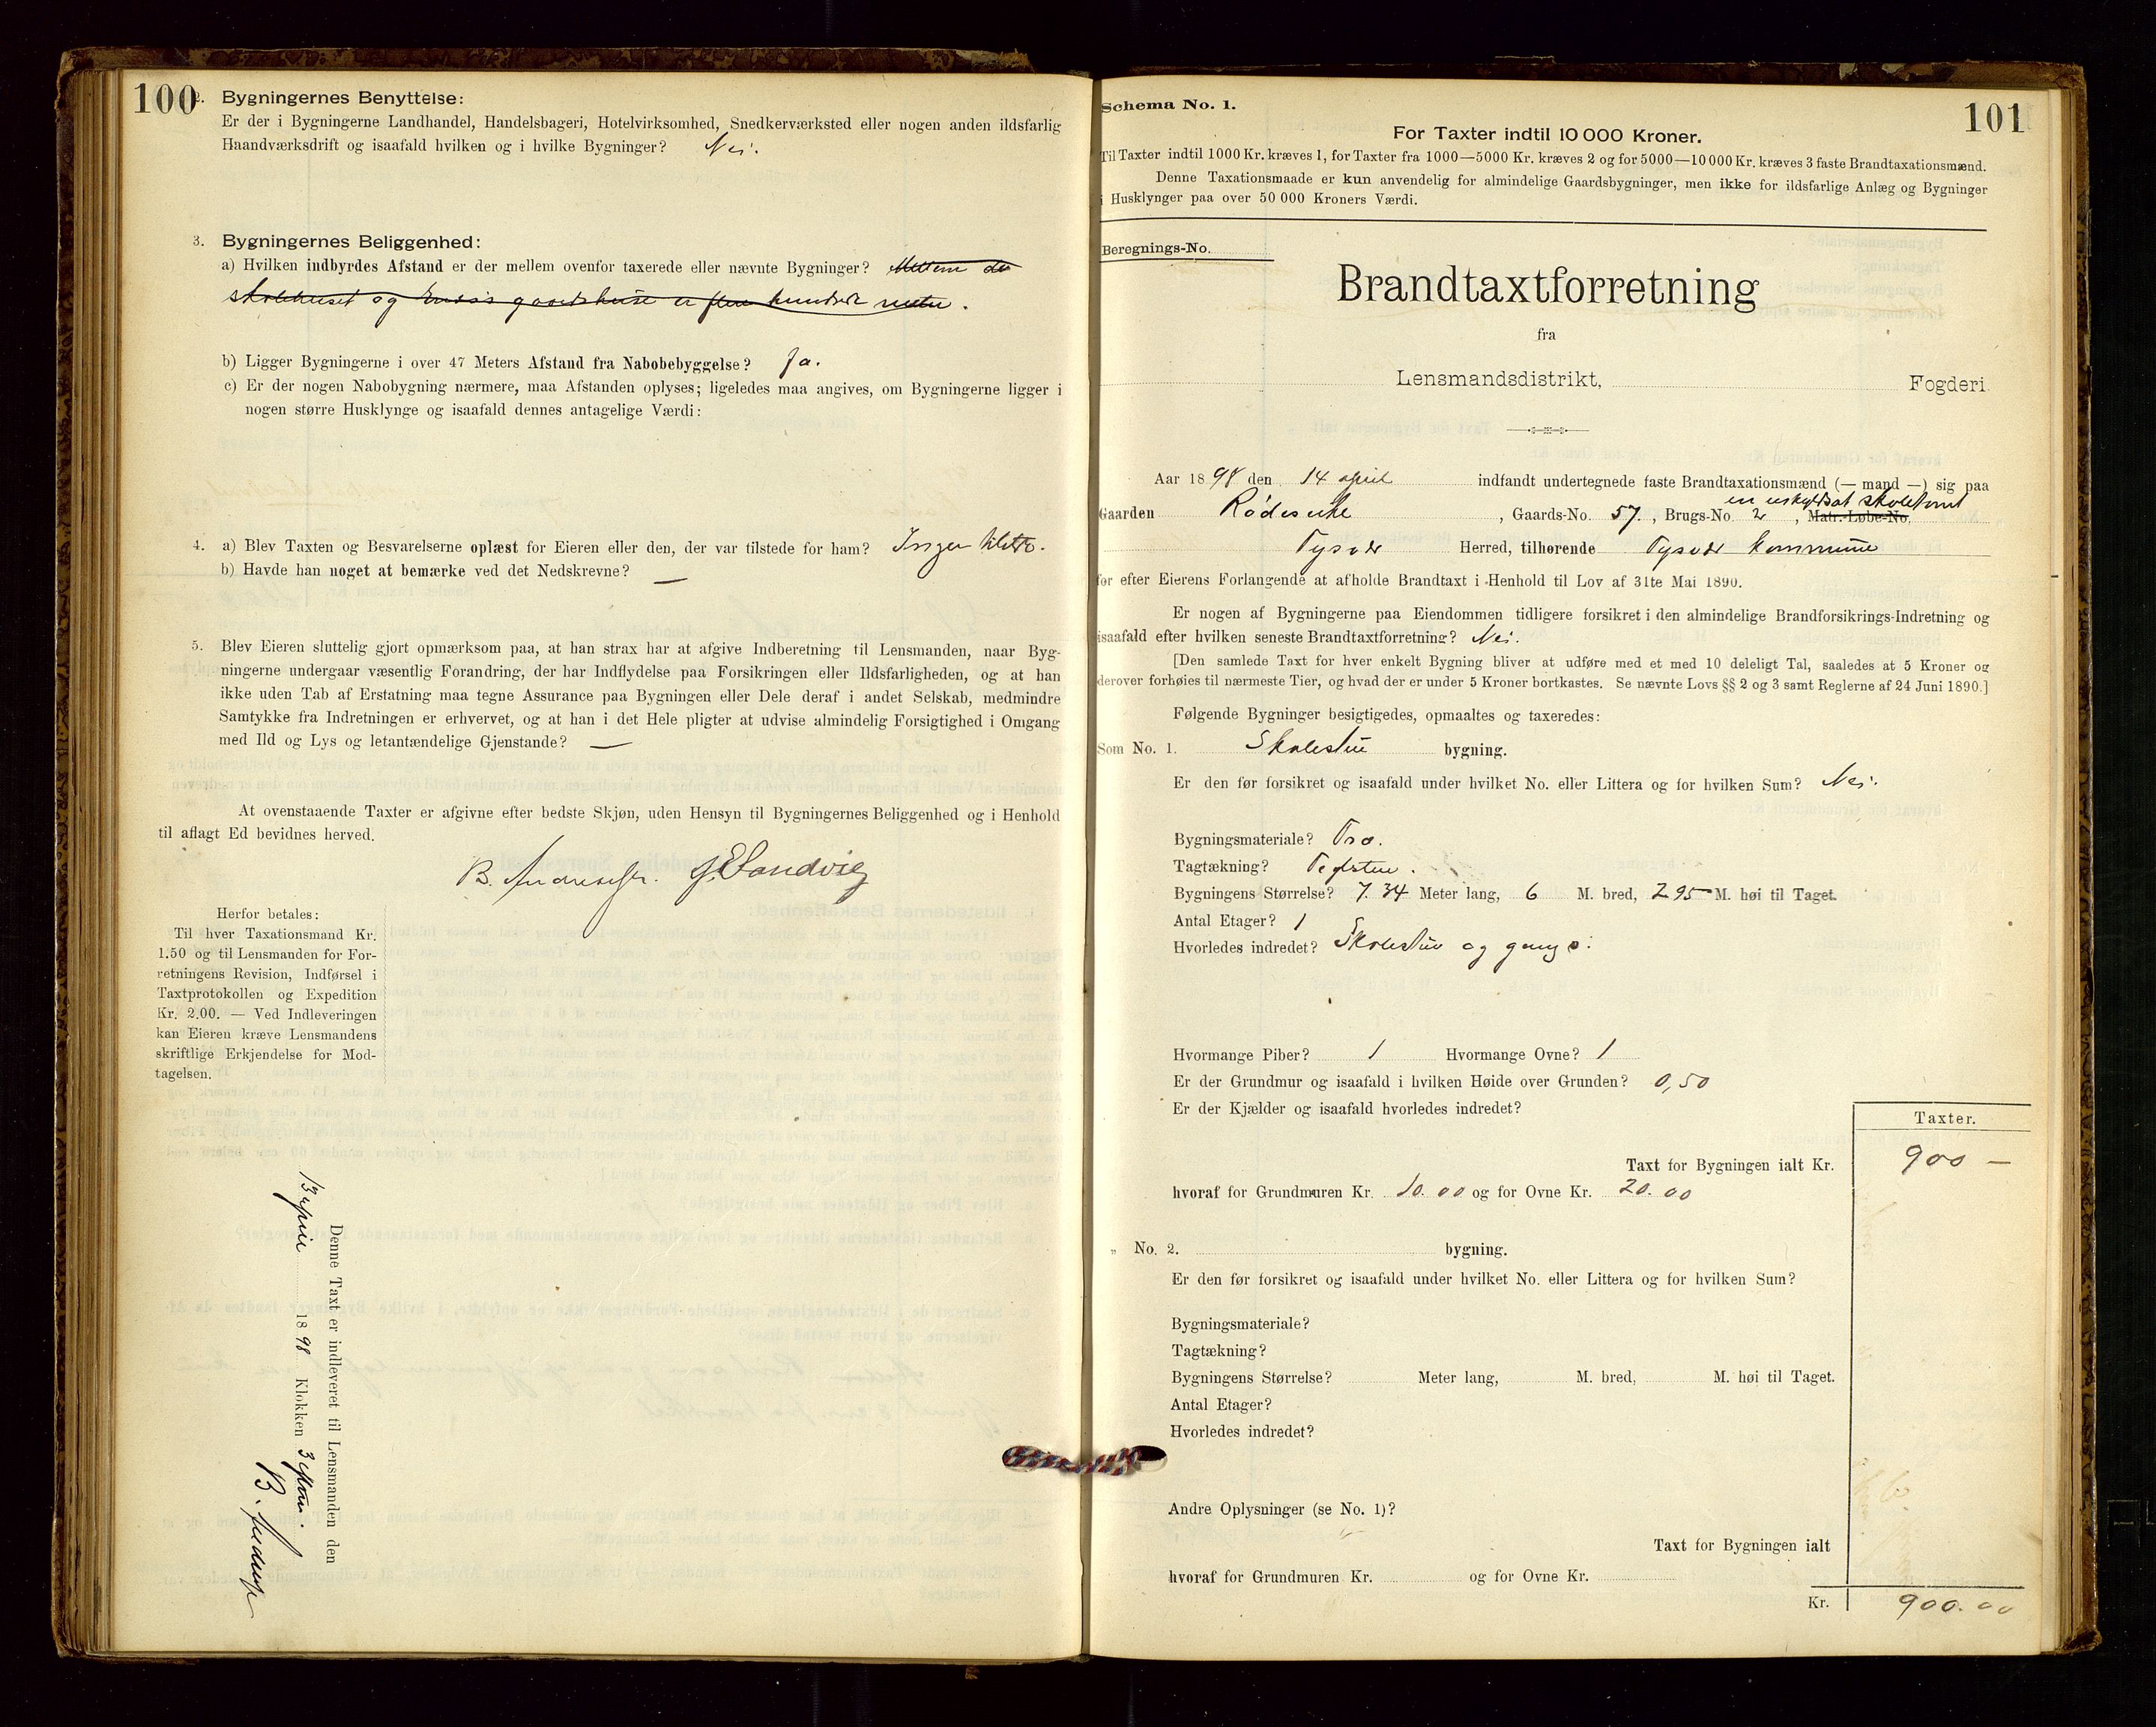 100
2. Bygningernes Benyttelse:
Er der i Bygningerne Landhandel, Handelsbageri, Hotelvirksomhed, Snedkerværksted eller nogen anden ildsfarlig
Haandværksdrift og isaafald hvilken og i hvilke Bygninger? Nei.
3. Bygningernes Beliggenhed:
a) Hvilken indbyrdes Afstand er der mellem ovenfor taxerede eller nævnte Bygninger? Mellem de
skolehuset og gaardshuse er flere hundrede meter.
b) Ligger Bygningerne i over 47 Meters Afstand fra Nabobebyggelse? Ja.
c) Er der nogen Nabobygning nærmere, maa Afstanden oplyses; ligeledes maa angives, om Bygningerne ligger i
nogen større Husklynge og isaafald dennes antagelige Værdi:
4. a) Blev Taxten og Besvarelserne oplæst for Eieren eller den, der var tilstede for ham? Ingen tilstede.
b) Havde han noget at bemærke ved det Nedskrevne? —
5. Blev Eieren sluttelig gjort opmærksom paa, at han strax har at afgive Indberetning til Lensmanden, naar Byg-
ningerne undergaar væsentlig Forandring, der har Indflydelse paa Forsikringen eller Ildsfarligheden, og at han
ikke uden Tab af Erstatning maa tegne Assurance paa Bygningen eller Dele deraf i andet Selskab, medmindre
Samtykke fra Indretningen er erhvervet, og at han i det Hele pligter at udvise almindelig Forsigtighed i Omgang
med Ild og Lys og letantændelige Gjenstande? —
At ovenstaaende Taxter er afgivne efter bedste Skjøn, uden Hensyn til Bygningernes Beliggenhed og i Henhold
til aflagt Ed bevidnes herved.
B. Andreasen. J. E. Sandvig
Herfor betales:
Til hver Taxationsmand Kr.
1.50 og til Lensmanden for For-
retningens Revision, Indførsel i
Taxtprotokollen og Expedition
Kr. 2.00. — Ved Indleveringen
kan Eieren kræve Lensmandens
skriftlige Erkjendelse for Mod-
tagelsen.
Denne Taxt er indleveret til Lensmanden den
1898 Klokken 3
B.
101
Schema No. 1.
For Taxter indtil 10 000 Kroner.
Til Taxter indtil 1000 Kr. kræves 1, for Taxter fra 1000—5000 Kr. kræves 2 og for 5000—10 000 Kr. kræves 3 faste Brandtaxationsmænd.
Denne Taxationsmaade er kun anvendelig for almindelige Gaardsbygninger, men ikke for ildsfarlige Anlæg og Bygninger
i Husklynger paa over 50 000 Kroners Værdi.
Beregnings-No.
Brandtaxtforretning
fra
Lensmandsdistrikt, Fogderi
Aar 1898 den 14 april indfandt undertegnede faste Brandtaxationsmænd (— mand —) sig paa
en uskyldsat skoletomt
Gaarden , Gaards-No. 57. , Brugs-No. 2 , Matr.-Løbe-No.
Tysvær Herred, tilhørende Tysvær kommune
for efter Eierens Forlangende at afholde Brandtaxt i Henhold til Lov af 31te Mai 1890.
Er nogen af Bygningerne paa Eiendommen tidligere forsikret i den almindelige Brandforsikrings-Indretning og
isaafald efter hvilken seneste Brandtaxtforretning? Nei.
[Den samlede Taxt for hver enkelt Bygning bliver at udføre med et med 10 deleligt Tal, saaledes at 5 Kroner og
derover forhøies til nærmeste Tier, og hvad der er under 5 Kroner bortkastes. Se nævnte Lovs §§ 2 og 3 samt Reglerne af 24 Juni 1890.]
Følgende Bygninger besigtigedes, opmaaltes og taxeredes:
Som No. 1. Skolestue bygning.
Er den før forsikret og isaafald under hvilket No. eller Littera og for hvilken Sum? Nei.
Bygningsmateriale? Træ.
Tagtækning? Teglsten.
Bygningens Størrelse? 7.34 Meter lang, 6 M. bred, 2 95 M. høi til Taget.
Antal Etager? 1
Hvorledes indredet? Skolestue og gang.
Hvormange Piber? 1 Hvormange Ovne? 1
Er der Grundmur og isaafald i hvilken Høide over Grunden? 0,50
Er der Kjælder og isaafald hvorledes indredet?
Taxter.
Taxt for Bygningen ialt Kr. 900 —
hvoraf for Grundmuren Kr. 10.00 og for Ovne Kr. 20.00
„ No. 2. bygning.
Er den før forsikret og isaafald under hvilket No. eller Littera og for hvilken Sum?
Bygningsmateriale?
Tagtækning?
Bygningens Størrelse? Meter lang, M. bred, M. høi til Taget.
Antal Etager?
Hvorledes indredet?
Andre Oplysninger (se No. 1)?
Taxt for Bygningen ialt
hvoraf for Grundmuren Kr. og for Ovne Kr.
Kr. 900.00